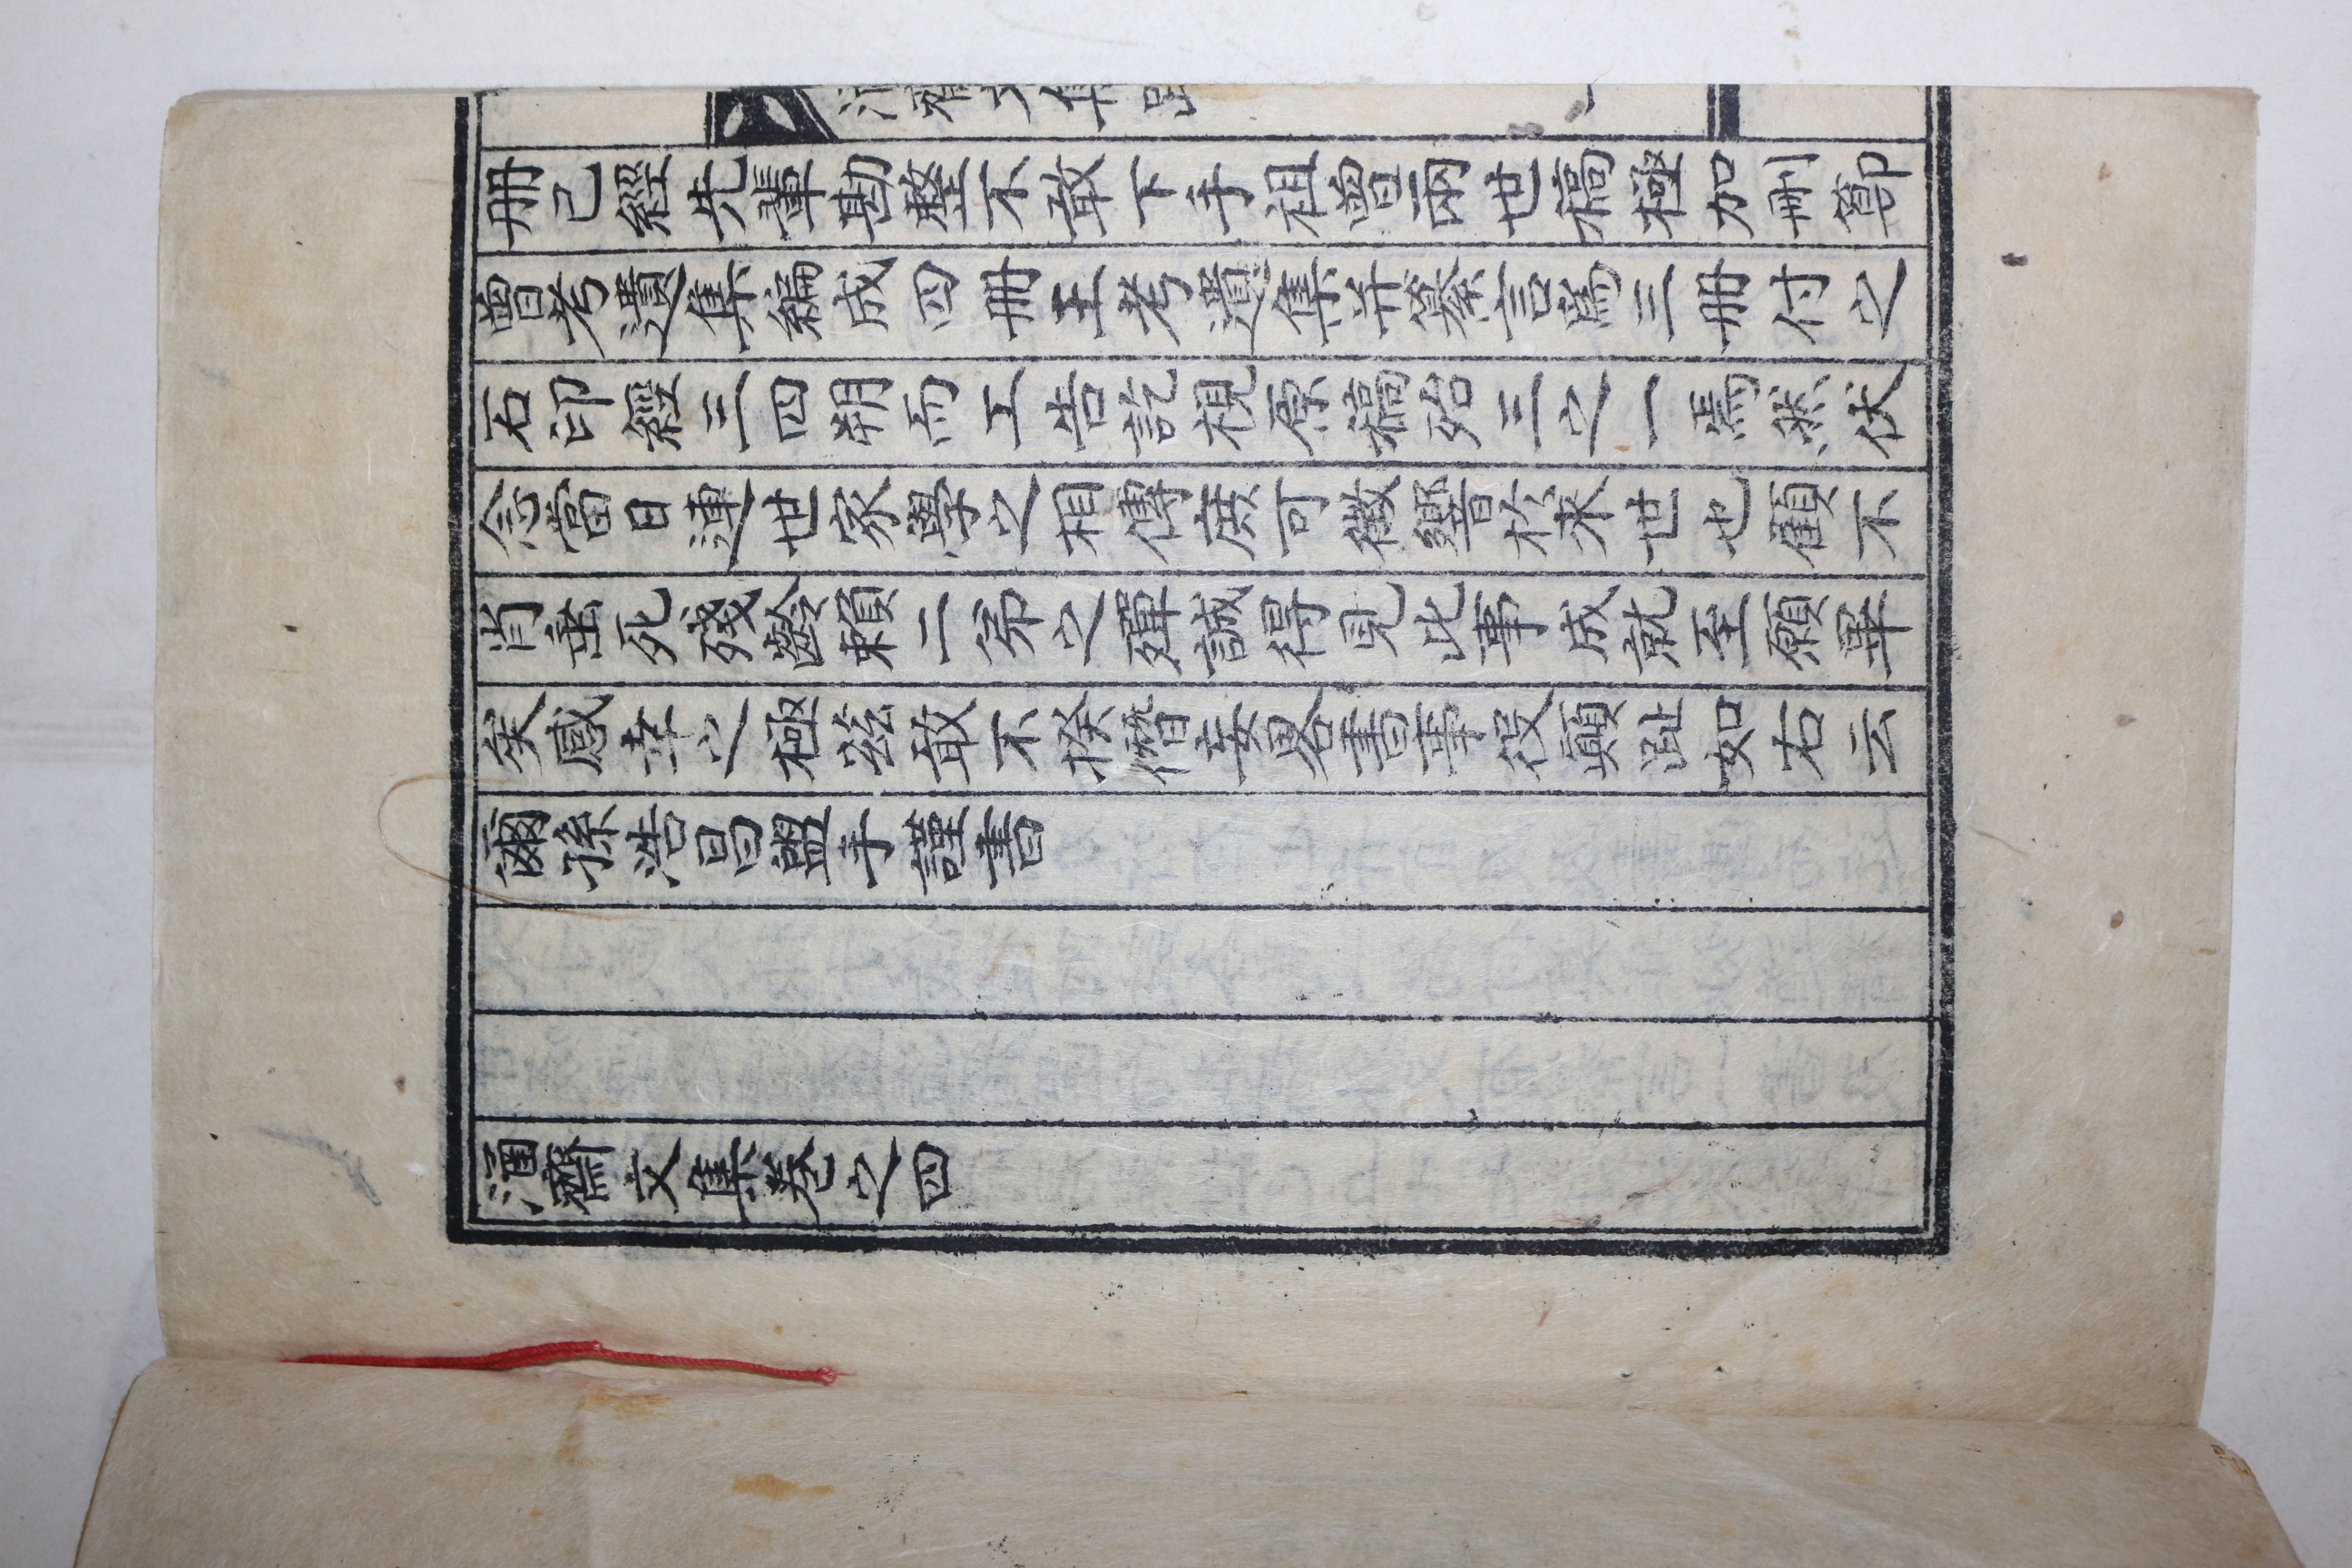 冊已經先輩勘整不敢下手祖曾兩世稿極加刪節
曾考遺集編成四冊王考遺集并纂言爲三冊付之
石印經三四朔而工告訖視原稿殆三之一焉然伏
念當日連世家學之相傳庶可徵響於來世也顧不
肖垂死殘齡賴二弟之殫誠得見此事成就至願畢
矣感幸之極玆敢不揆僭妄畧書事役顚趾如右云
爾孫浩昌盥手謹書
湎齋文集卷之四